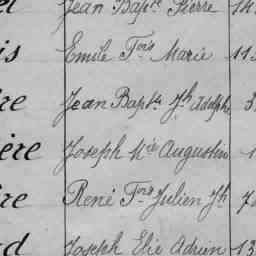 Jean Bapte Pierre 14
is Emile Fois Marie 11
re Jean Bapte Jh Adolphe 3
ère Joseph Mie Augustin 1
re René Fois Julien Jh 7
d Joseph Elie Adrien 13